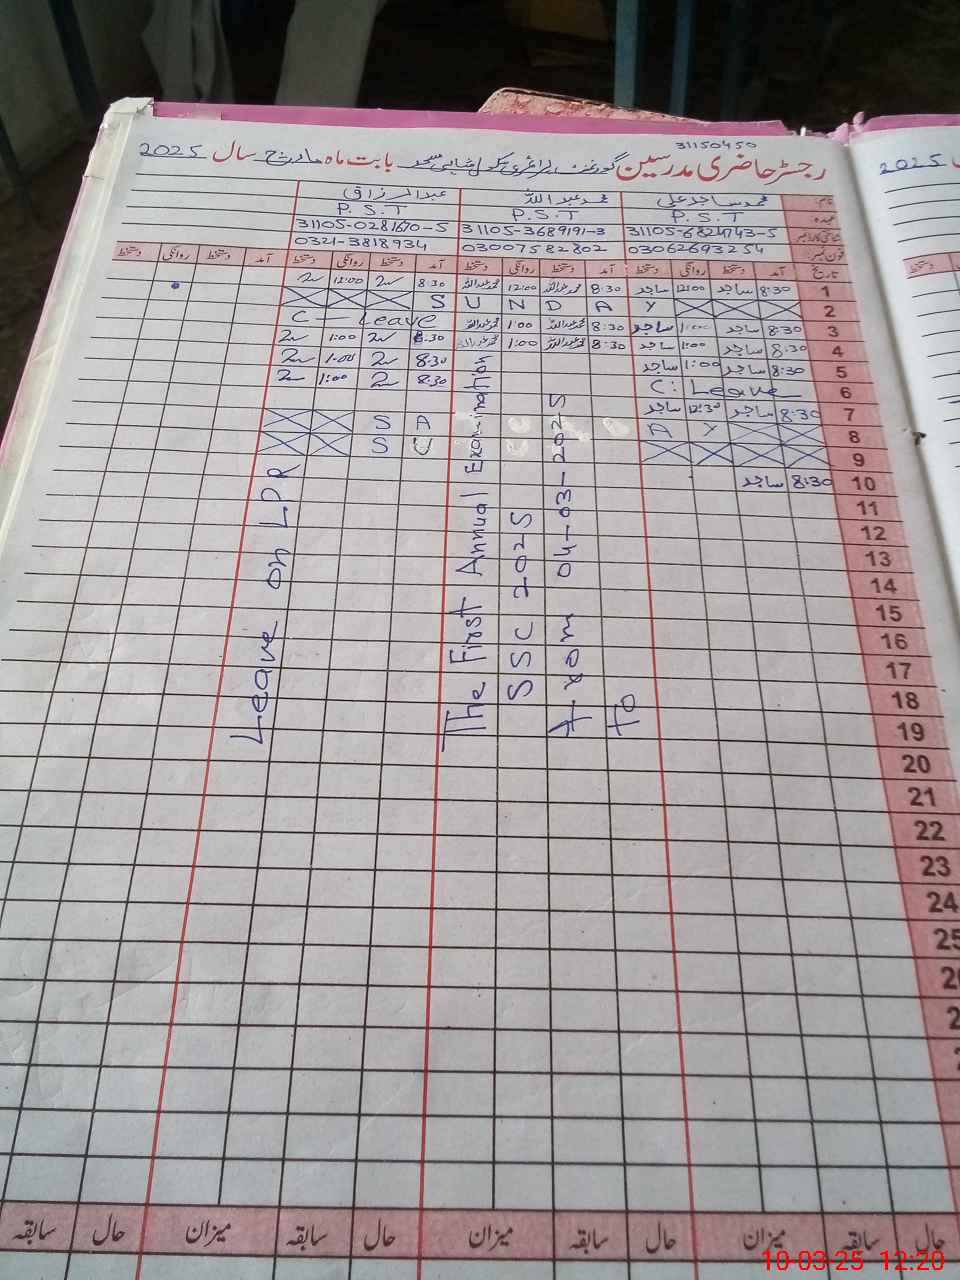 31150450
رجسٹر حاضری مدرسین گورنمنٹ پرائمری سکول بابت ماہ مارچ سال 2025
2025
نام محمد ساجد علی محمد عبد اللہ عبدالرزاق
عہدہ P.S.T P.S.T P.S.T
شناختی کارڈ نمبر 31105-6824743-5 31105-3689191-3 31105-0281670-5
فون نمبر 03062693254 03007582802 0321-3818934
تاریخ آمد دستخط روانگی دستخط آمد دستخط روانگی دستخط آمد دستخط روانگی دستخط آمد دستخط روانگی دستخط
1 8:30 ساجد 12:00 ساجد 8:30 محمد عبداللہ 12:00 محمد عبداللہ 8:30 12:00
2 S U N D A Y
3 8:30 ساجد 1:00 ساجد 8:30 محمد عبداللہ 1:00 محمد عبداللہ C - Leave
4 8:30 ساجد 1:00 ساجد 8:30 محمد عبداللہ 1:00 محمد عبداللہ 8:30 1:00
5 8:30 ساجد 1:00 ساجد 8:30 1:00
6 C: Leave 8:30 1:00
7 8:30 ساجد 12:30 ساجد
8 S A A Y
9 S U
10 8:30 ساجد
11
12
13
14
15
16
17
18
19
20
21
22
23
24
25
Leave on LPR
The First Annual Examination
SSC 2025
From 04-03-2025
To
سابقہ حال میزان سابقہ حال میزان سابقہ حال میزان سابقہ حال
10-03-25 12:20